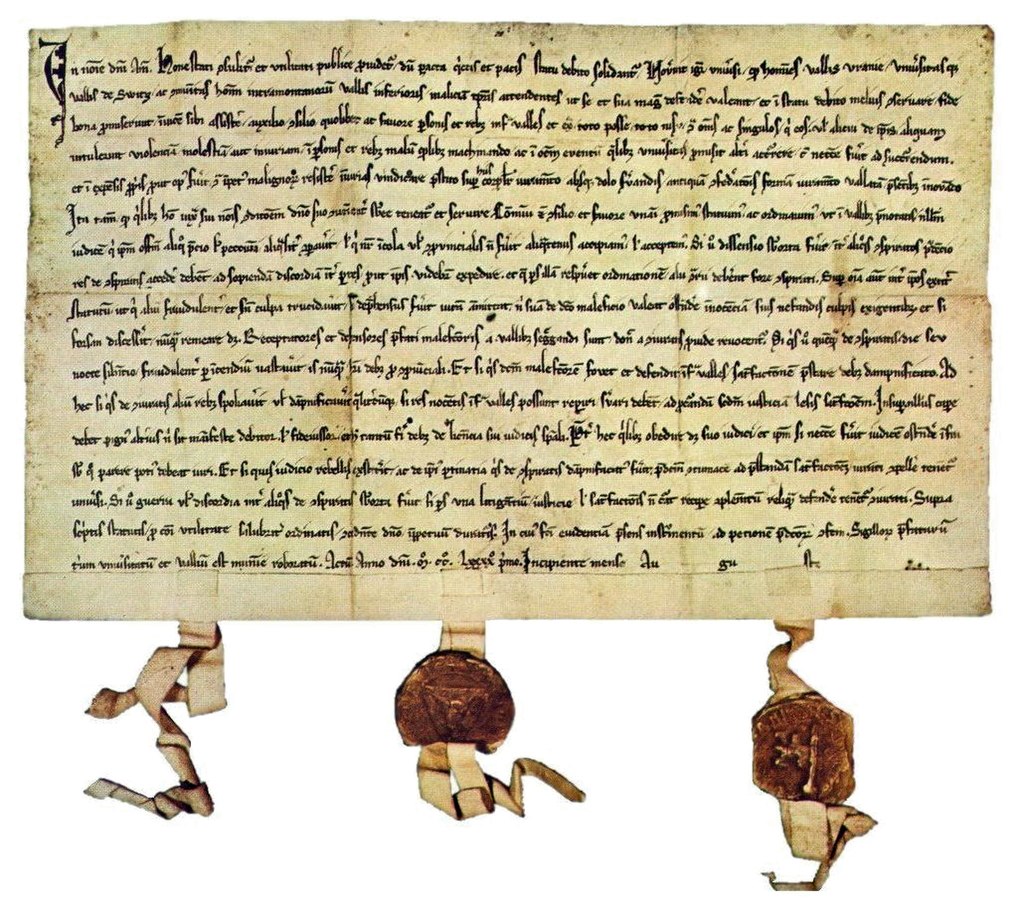 In noīe dn̄i Am̄. Honestati ꝯsulit᷑ et utilitati publice ꝓvidet᷑ dū pacta q̇etis et pacis statu debito solidant᷑ Noverint igit᷑ univ̄si q̇ hom̄es vallis uranie univ̄sitasq̇
vallis de Switz ac hom̄m intramontanorum vallis inferioris maliciam tp̄ris attendentes ut se et sua mag̓ defēdere valeant et ī statu debito melius ꝯservare fide
bona ꝓmiserunt īvicem sibi assistere auxilio ꝯsilio quolibet ac favore ꝑsonis et reb̓ infra valles et ex̄ toto posse toto nisu ꝯ̄ om̄s ac singulos q̇ eos vel alicui de ip̄is aliquam
intulerint violenciam molestiam aut iniuriam ī ꝑsonis et reb̓ malum quodlib̓ machinando ac ī om̄em eventum q̇libet univ̄sitas ꝓmisit alt̓i accurrere cum neccesse fuerit ad succurrendum
et ī expensis ꝓp̓is ꝓut op̓ fuerit ꝯ̄ īpetus malignorum resistere īiurias vindicare prestito sup̓ his corporaliter iuramento absq̇ dolo servandis antiquam ꝯfederationis formam iuramento vallatam p̄sentib̓ innovando
Ita tamen q̇ q̇libet homo iuxta sui nom̄is ꝯditionem dn̄o suo ꝯvenienter subesse teneatur et servire Com̄uni etiam ꝯsilio et favore unanimi ꝓmisimus statuimus ac ordinavimus ut in vallibus prenotatis nullum
iudicem q̇ ip̄m officium aliquo precio vel peccunia aliqualiter ꝯparaverit vel q̇ n̄r īcola vel ꝓvincialis non fuerit aliquatenus accipiamus vel acceptemus Si v̊ dissensio suborta fuerit īter aliquos ꝯspiratos prudencio
res de ꝯspiratis accedere debent ad sopiendam discordiam īter partes ꝓut ip̄is videbitur expedire et que pars illam respueret ordinationem alii ꝯtrarii deberent fore ꝯspirati Sup̓ om̄ia autem īter ip̄os extitit
statutum ut q̇ alium fraudulenter et sine culpa trucidaverit si deprehensus fuerit vitam ammittat nisi suam de dicto maleficio valeat ostendere innocenciam suis nefandis culpis exigentibus et si
forsan discesserit nunquam remeare debet Receptatores et defensores prefati malefactoris a vallibus segregandi sunt donec a ꝯiuratis ꝓvide revocentur Si q̇s v̊ quemquam de ꝯspiratis die seu
nocte silentio fraudulenter per īcendium vastaverit is nunquam haberi debet pro ꝯpᵃ̄vinciali Et si q̇s dictum malefactorem fovet et defendit infra valles satisfactionem prestare debet dampnificato Ad
hec si q̇s de ꝯiuratis alium rebus spoliaverit vel dampnificaverit qualitercumque si res nocentis infra valles possunt reperiri servari debent ad procurandam secundum iusticiam lesis satisfactionem Insuper nullus capere
debet pignus alterius nisi sit manifeste debitor vel fideiussor et hoc tantum fieri debet de licencia sui iudicis speciali Preter hec q̇libet obedire debet suo iudici et ip̄m si neccesse fuerit iudicem ostendere infra
sub quo parere potius debeat iuri Et si quis iudicio rebellis exstiterit ac de ip̄i ꝑtinatia q̇s de ꝯspiratis dampnificatus fuerit predictum ꝯtumacem ad prestandam satisfactionem iurati ꝯpellere tenentur
univ̄si Si v̊ guerra vel discordia īter aliquos de ꝯspiratis suborta fuerit si pars una litigantium iusticie vel satisfactionis non curat recipere ꝯplementum reliquam defendere tenentur ꝯiurati Supra
scriptis statutis ꝓ com̄uni utilitate salubriter ordinatis ꝯcedente domino īperpetuum duraturis In cuius facti evidentiam presens instrumentum ad peticionem predictorum ꝯfectum Sigillorum prefatarum
trium univ̄sitatum et vallium est munimine roboratum Actum Anno dn̄i m̊ cc̊ Lxxxx̊ p̓mo Incipiente mense Au gu sto